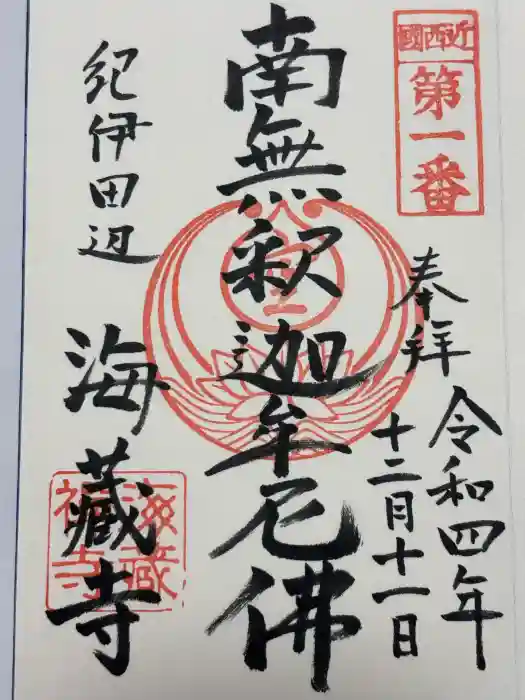 近西國
第一番
奉拝
令和四年
十二月十一日
南無釈迦牟尼佛
紀伊田辺
海蔵寺
海蔵禅寺